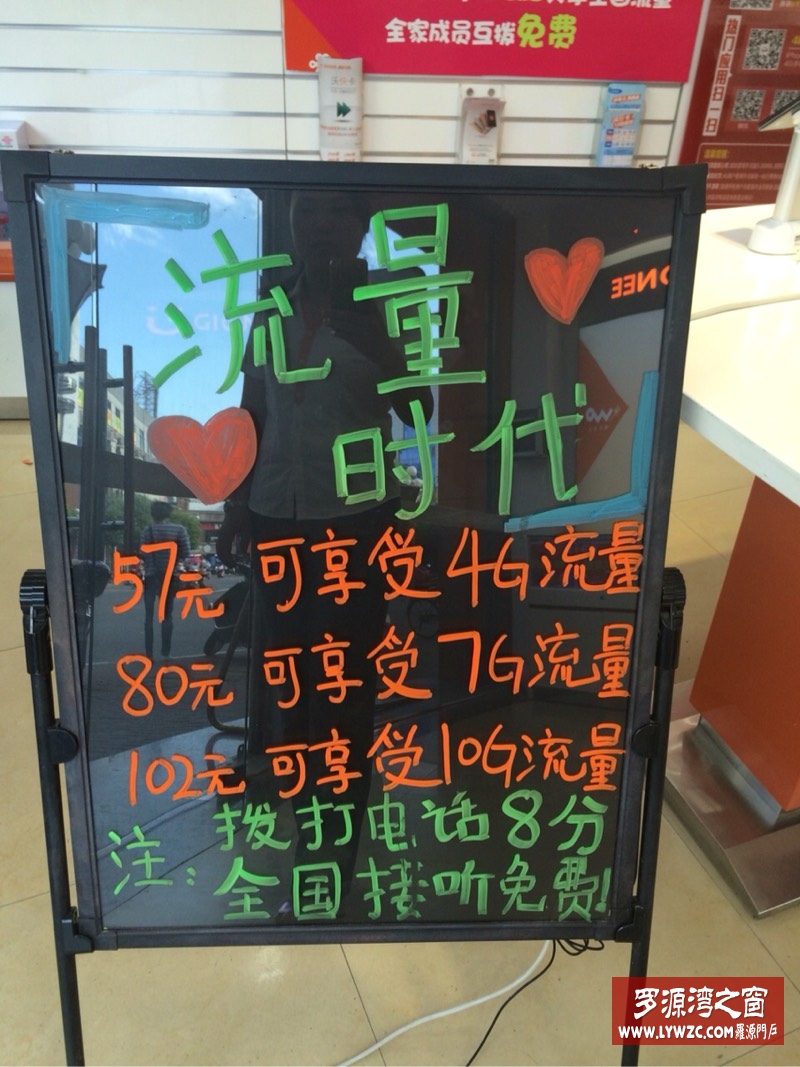 全家成员互拨免费
热门应用扫一扫
流量
时代
57元 可享受4G流量
80元 可享受7G流量
102元 可享受10G流量
注: 拨打电话8分
全国接听免费!
罗源湾之窗
WWW.LYWZC.COM羅源門戶